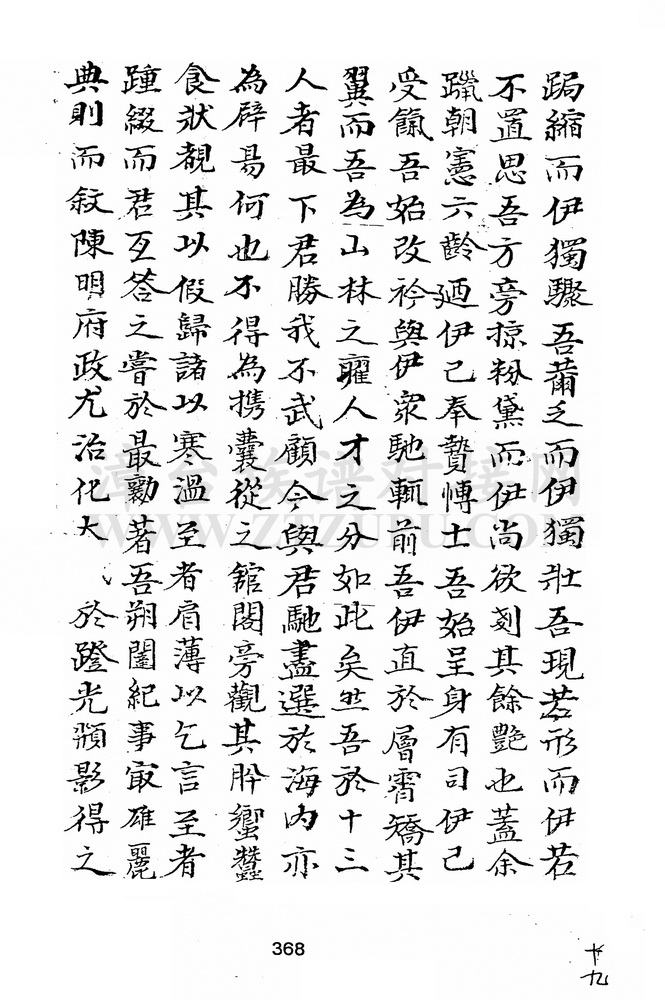 跼縮而伊獨驟吾薾乏而伊獨壯吾現若形而伊若
不置思吾方旁掠粉黛而伊尚欲刻其餘艷也蓋余
躐朝憲六齡廼伊已奉贄博士吾始呈身有司伊已
受餼吾始改衿與伊眾馳輒前吾伊直於層霄矯其
翼而吾為山林之臞人才之分如此矣然吾於十三
人者最下君勝我不武顧今與君馳盡選於海內亦
為辟易何也不得為携囊從之館閣旁觀其肸蠁蠢
食狀覩其以假歸諸以寒溫至者肩薄以乞言至者
踵綴而君互答之嘗於最勷著吾朔閨紀事最雄麗
典則而敘陳明府政尤治化大 於蹬光顯影得之
漳台族谱对接网
WWW.ZTZUPU.COM
368
十九